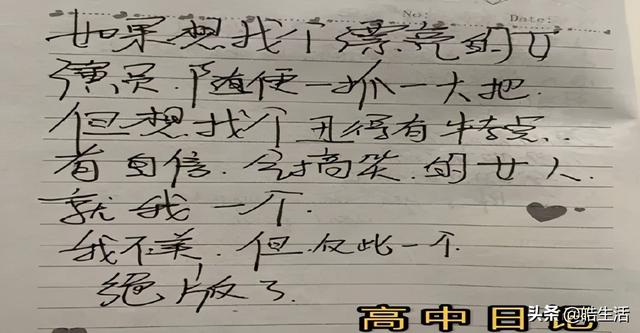 No: Date:
如果想找个漂亮的女
演员.随便一抓一大把.
但想找个丑得有特点..
有自信.会搞笑.的女人.
就我一个.
我不美.但仅此一个.
绝版了.
高中日记
头条@皓生活